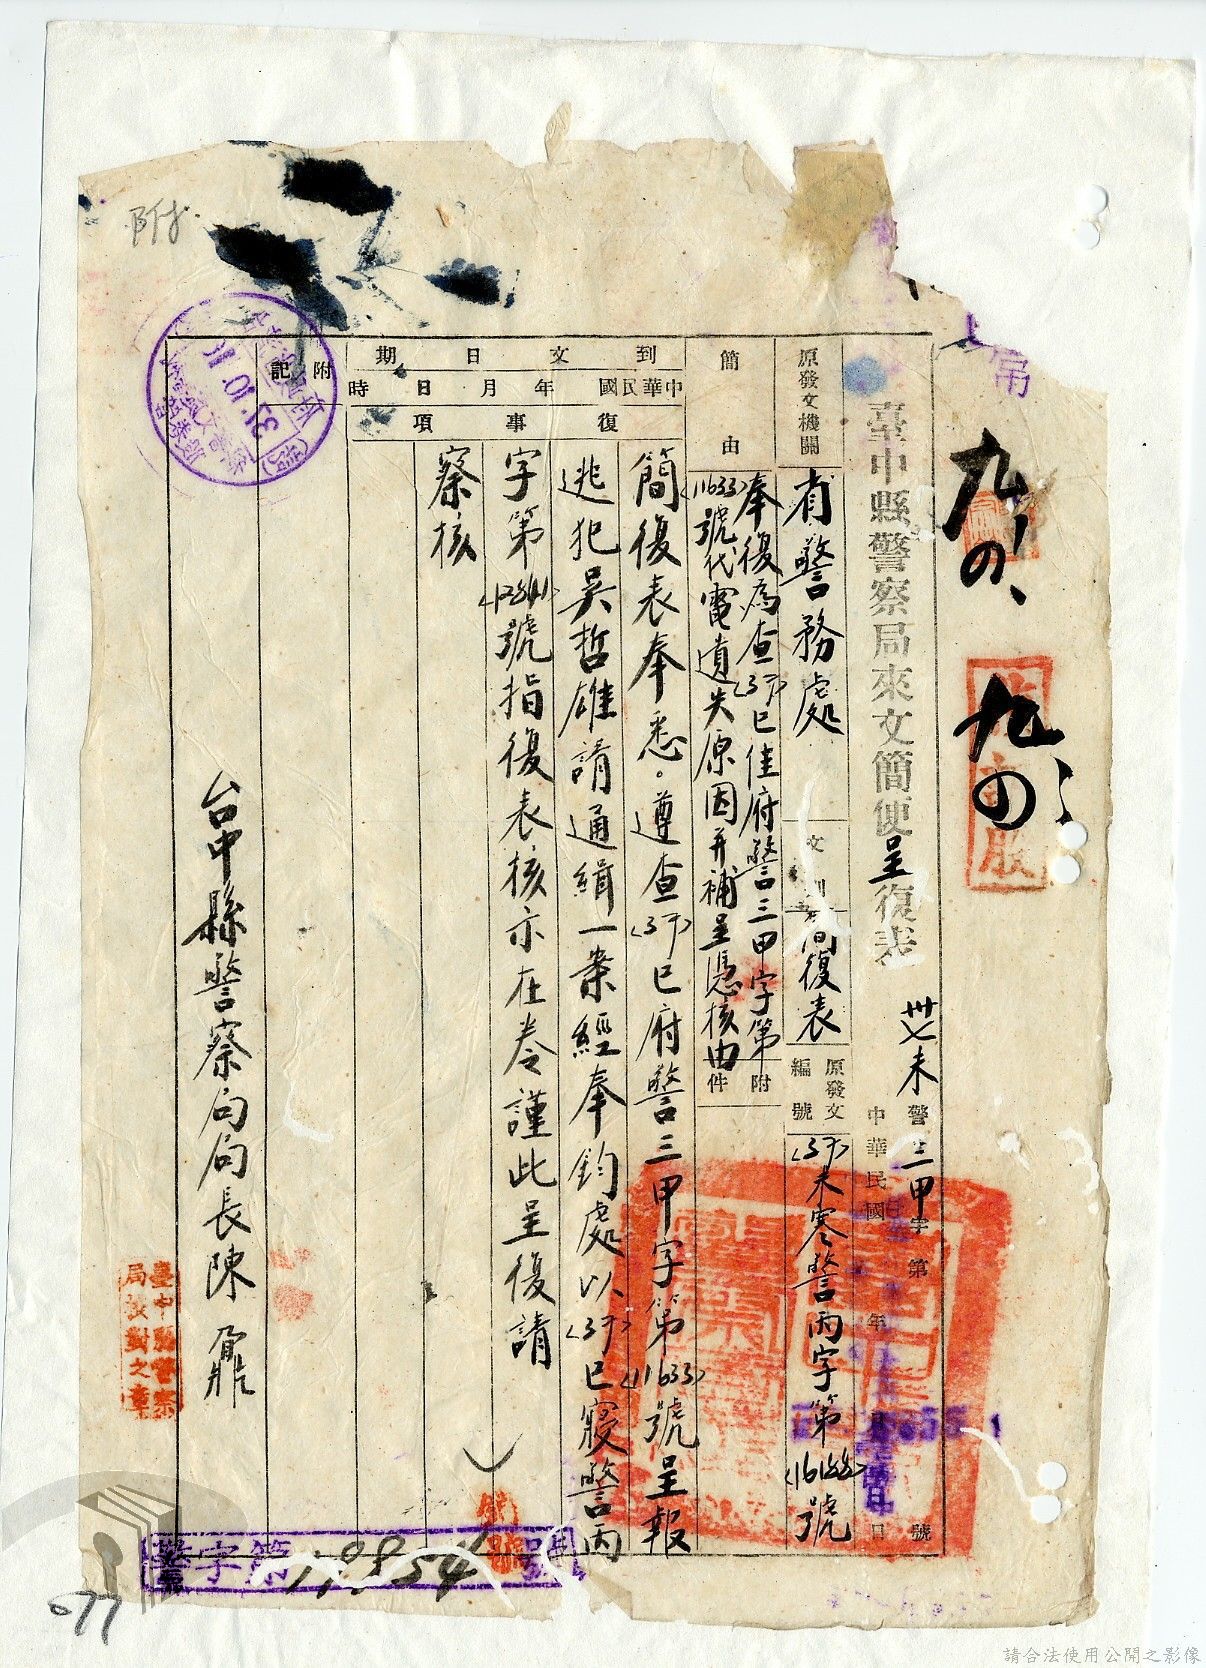 附
九の、
九の
臺中縣警察局來文簡便呈復表
卅七未警三甲字第號
中華民國年月日
原發文機關
省警務處
文別
簡復表
原發文編號
(37)未寒警丙字第(16188)號
簡由
奉復為查(37)巳佳府警三甲字第
(11633)號代電遺失原因并補呈憑核由
附件
到文日期
中華民國年月日時
附記
復事項
簡復表奉悉。遵查(37)巳府警三甲字第(11633)號呈報
逃犯吳哲雄請通緝一案經奉鈞處以(37)巳寢警丙
字第(12841)號指復表核示在卷謹此呈復請
察核
台中縣警察局局長陳
臺中縣警察
局校對之章
31.10.
警字第19854號
077
請合法使用公開之影像